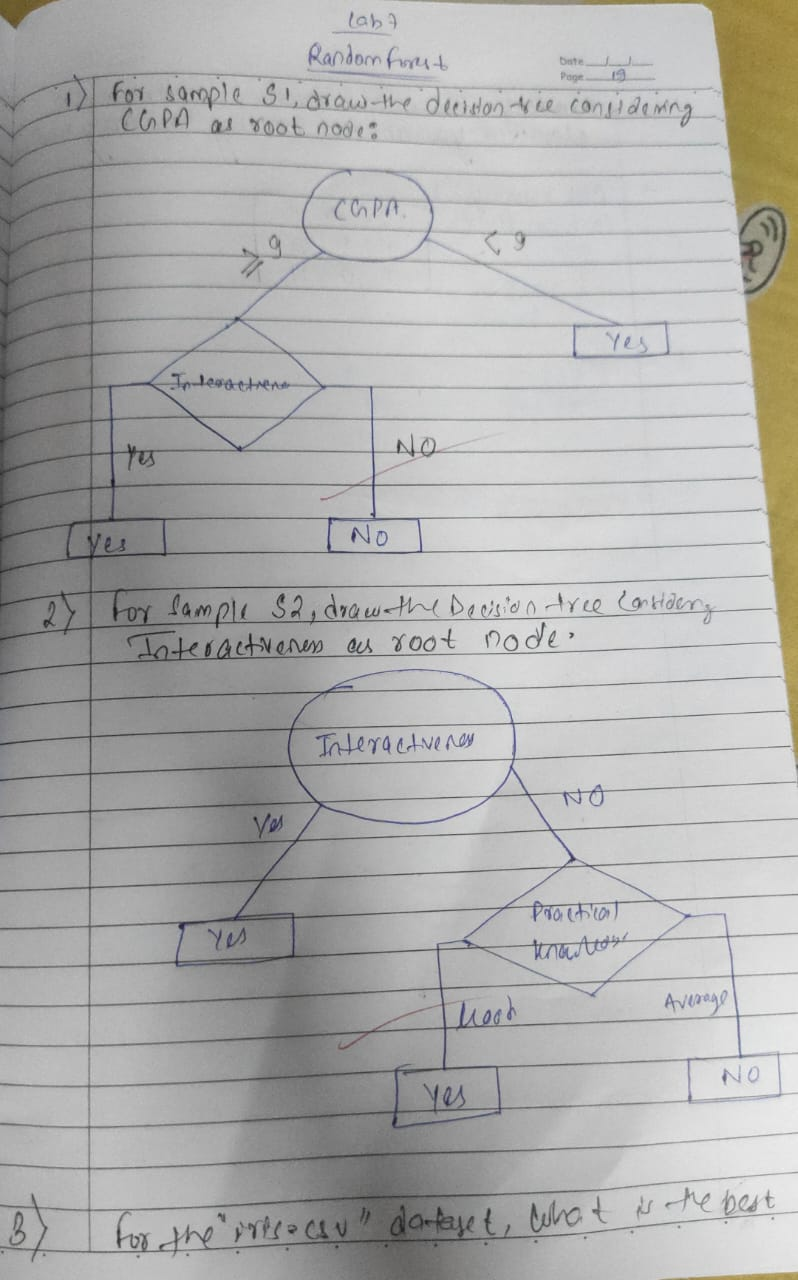 Lab 7
Random Forest
Date / /
Page 19
1) For sample S1, draw the decision tree considering
CGPA as root node:
CGPA
≥ 9
< 9
Yes
Yes
NO
Yes
NO
2) For Sample S2, draw the Decision tree
Interactiveness as root node.
Interactiveness
Yes
NO
Yes
Practical
Good
Average
Yes
NO
3) For the "iris.csv" dataset, What is the best